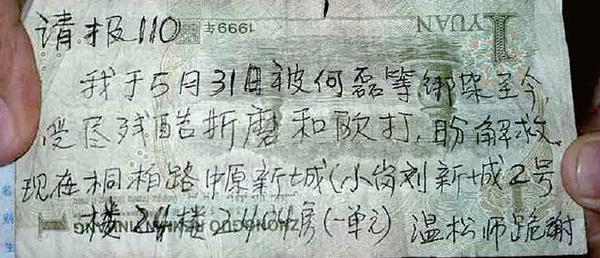 请报110
1999年
1 YUAN
我于5月31日被何磊等绑架至今,
受尽残酷折磨和殴打,盼解救.
现在桐柏路中原新城(小岗刘新城2号
楼24楼2404房(一单元) 温松师跪谢
ZHONGGUO RENMIN YINHANG